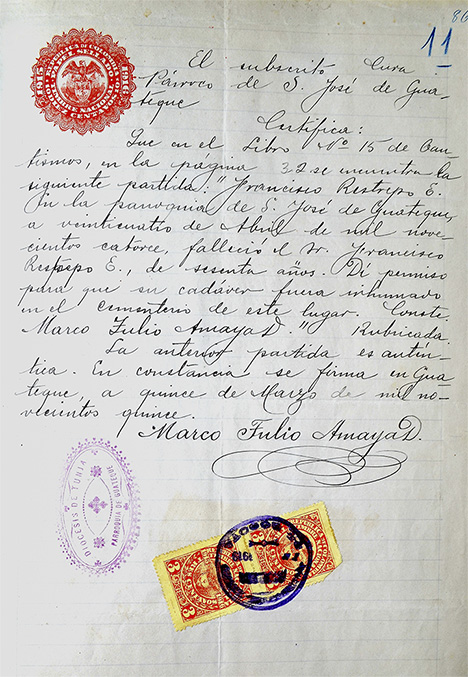 86
11
REPUBLICA DE COLOMBIA
PAPEL SELLADO
1915 1916
El subscrito Cura
Párroco de S. José de Gua-
teque
Certifica:
Que en el Libro Nº 15 de Bau-
tismos, en la página 32 se encuentra la
siguiente partida: "Francisco Restrepo E.
En la parroquia de S. José de Guateque,
a veinticuatro de Abril de mil nove-
cientos catorce, falleció el Sr. Francisco
Restrepo E., de sesenta años. Di permiso
para que su cadáver fuera inhumado
en el cementerio de este lugar. Conste.
Marco Fulio Amaya D." Rubricada.
La anterior partida es autén-
tica. En constancia se firma en Gua-
teque, a quince de Marzo de mil no-
vecientos quince.
Marco Fulio Amaya D.
DIOCESIS DE TUNJA
PARROQUIA DE GUATEQUE
3
3